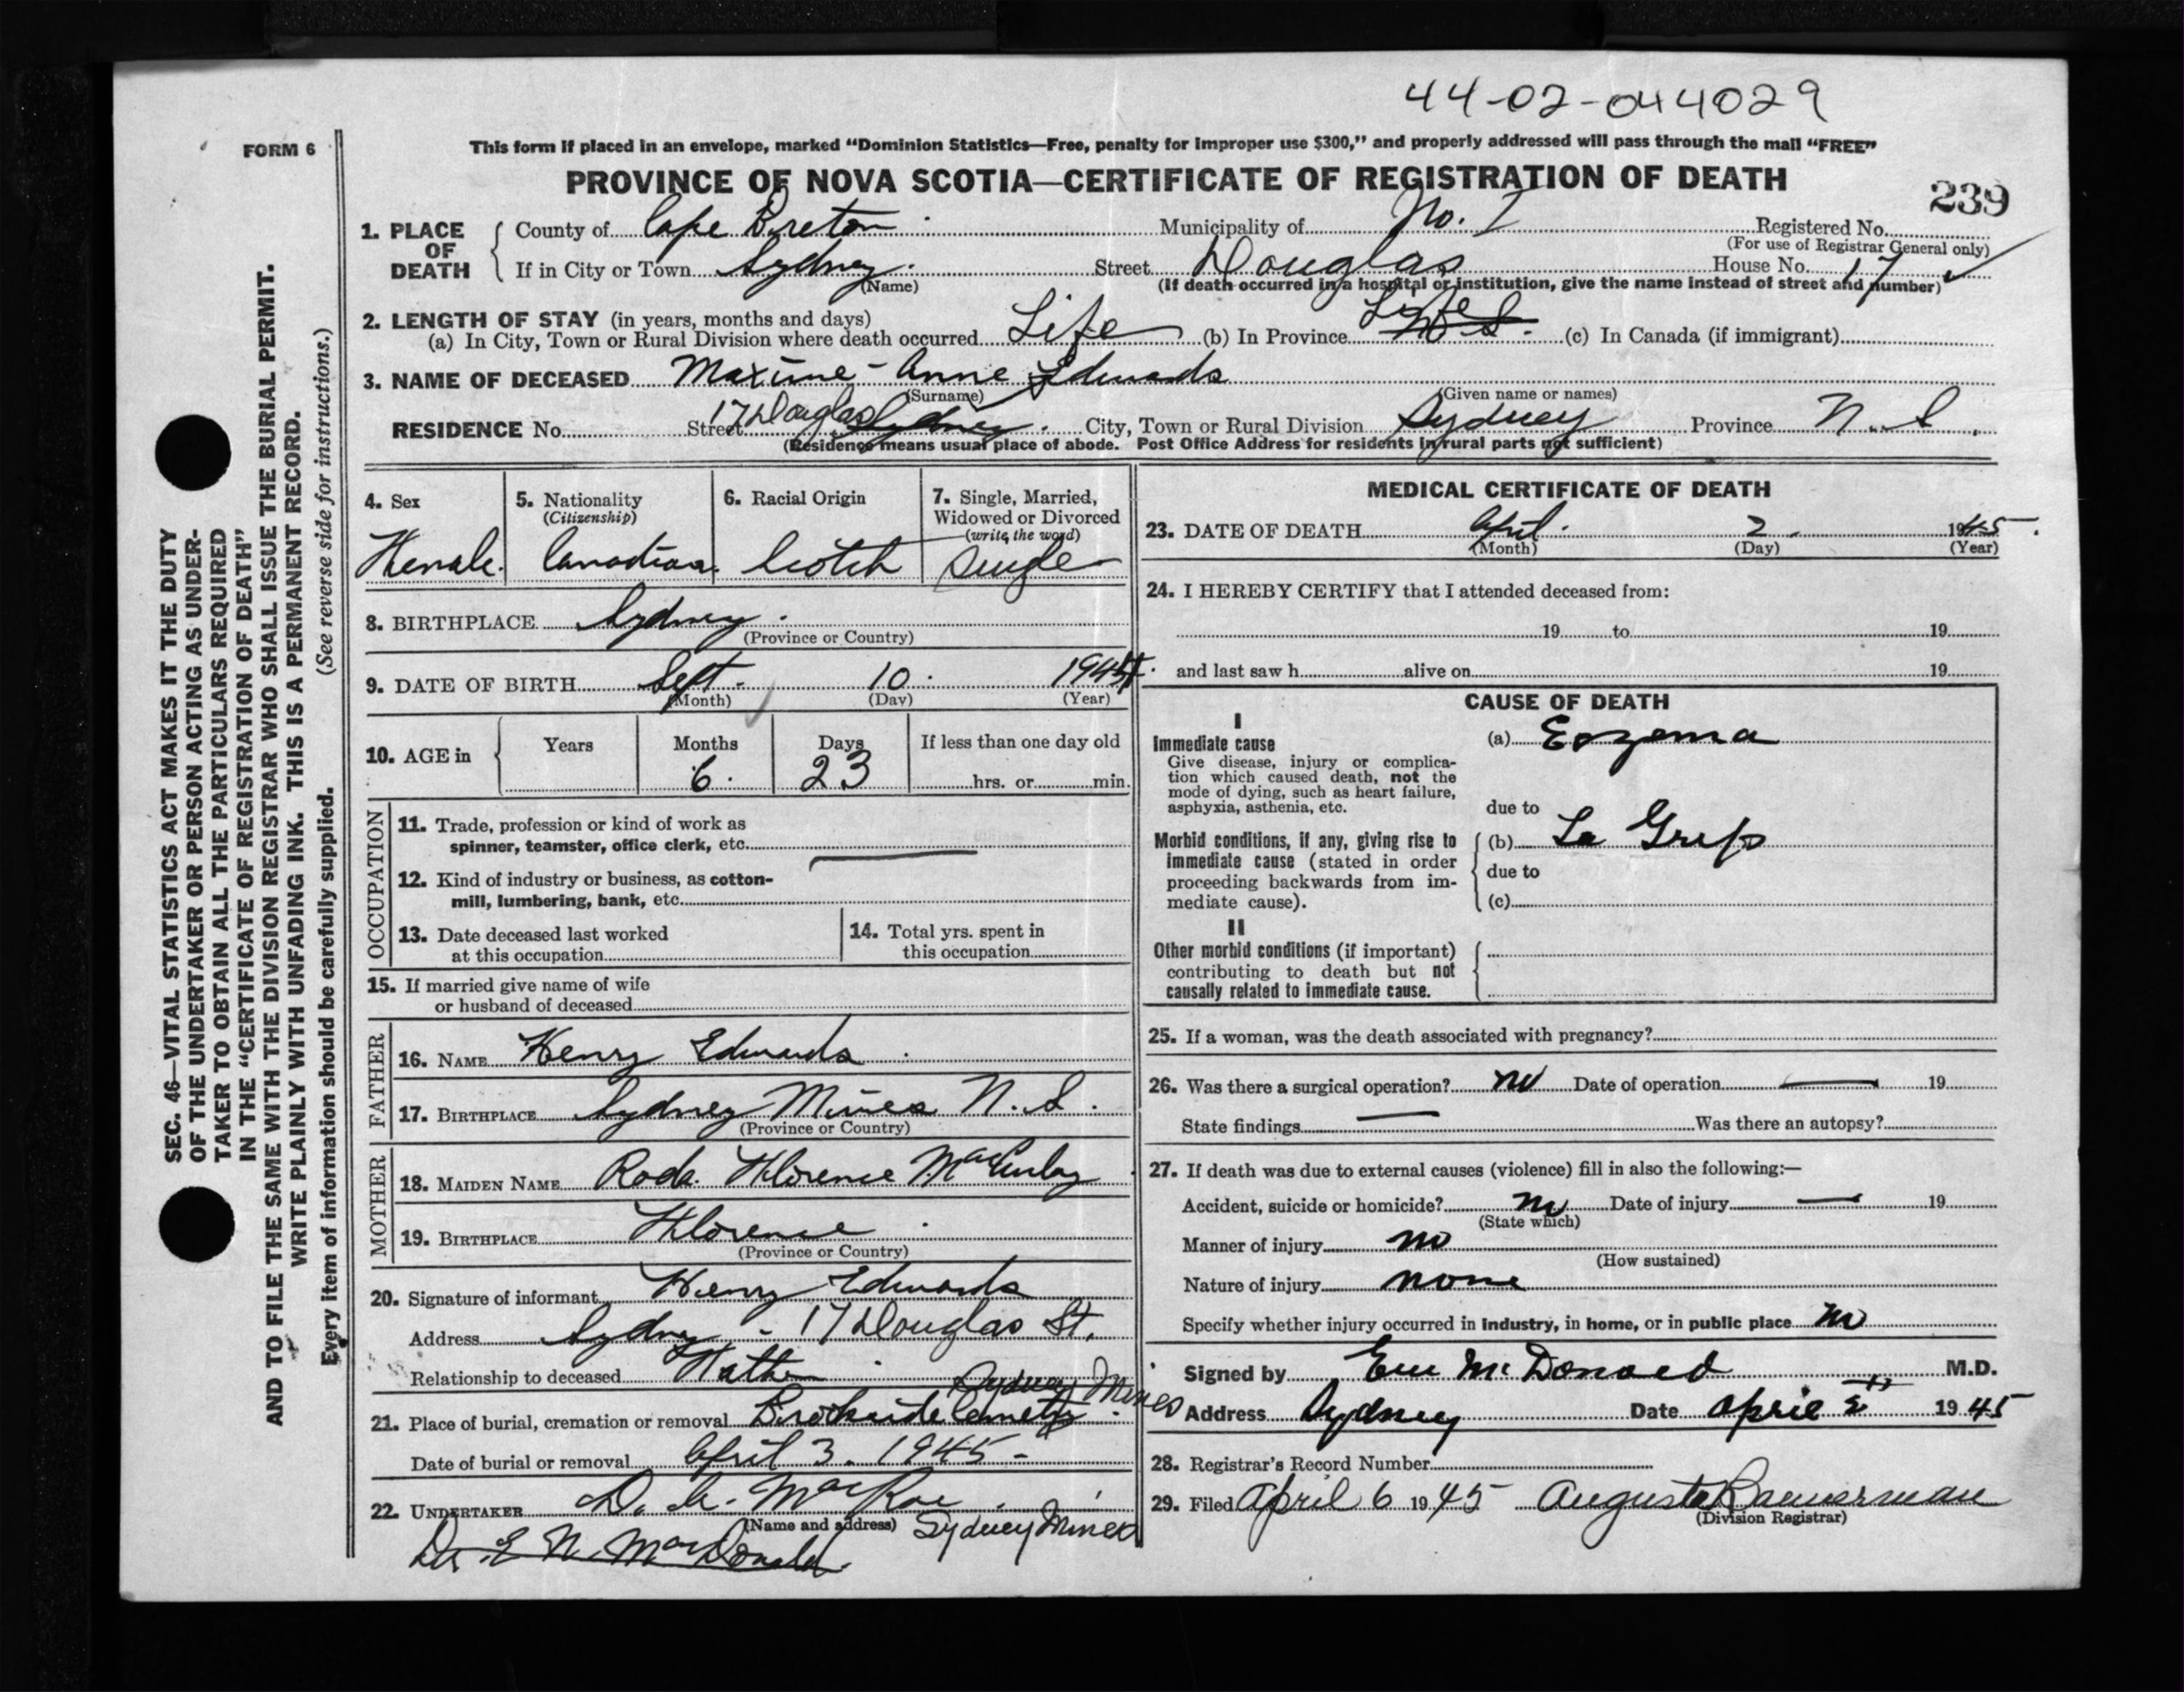 44-02-044029
FORM 6
This form if placed in an envelope, marked "Dominion Statistics—Free, penalty for improper use $300," and properly addressed will pass through the mail "FREE"
PROVINCE OF NOVA SCOTIA—CERTIFICATE OF REGISTRATION OF DEATH
239
1. PLACE OF DEATH { County of Cape Breton Municipality of No. I Registered No.
(For use of Registrar General only)
If in City or Town Sydney. Street Douglas House No. 17 ✓
(Name) (If death occurred in a hospital or institution, give the name instead of street and number)
2. LENGTH OF STAY (in years, months and days)
(a) In City, Town or Rural Division where death occurred Life (b) In Province Life N.S. (c) In Canada (if immigrant)
3. NAME OF DECEASED Maxine - Anne Edwards
(Surname) (Given name or names)
RESIDENCE No. Street 17 Douglas Sydney. City, Town or Rural Division Sydney Province N.S.
(Residence means usual place of abode. Post Office Address for residents in rural parts not sufficient)
4. Sex
Female.
5. Nationality
(Citizenship)
Canadian.
6. Racial Origin
Scotch
7. Single, Married,
Widowed or Divorced
(write the word)
Single
8. BIRTHPLACE Sydney.
(Province or Country)
9. DATE OF BIRTH Sept. 10. 1944.
(Month) (Day) (Year)
10. AGE in { Years Months Days If less than one day old
6. 23 hrs. or min.
OCCUPATION
11. Trade, profession or kind of work as
spinner, teamster, office clerk, etc.
12. Kind of industry or business, as cotton-
mill, lumbering, bank, etc.
13. Date deceased last worked
at this occupation
14. Total yrs. spent in
this occupation
15. If married give name of wife
or husband of deceased
FATHER
16. NAME Henry Edwards.
17. BIRTHPLACE Sydney Mines N.S.
(Province or Country)
MOTHER
18. MAIDEN NAME Roda Florence
19. BIRTHPLACE Florence.
(Province or Country)
20. Signature of informant Henry Edwards
Address Sydney - 17 Douglas St.
Relationship to deceased Father
Sydney Mines
21. Place of burial, cremation or removal Brookside Cemetery
Date of burial or removal April 3. 1945 -
22. UNDERTAKER D. A. MacRae.
(Name and address) Sydney Mines
Dr. E N. MacDonald.
MEDICAL CERTIFICATE OF DEATH
23. DATE OF DEATH April. 2. 1945.
(Month) (Day) (Year)
24. I HEREBY CERTIFY that I attended deceased from:
19 to 19
and last saw h alive on 19
CAUSE OF DEATH
I
Immediate cause
Give disease, injury or complica-
tion which caused death, not the
mode of dying, such as heart failure,
asphyxia, asthenia, etc.
(a) Eczema
due to
Morbid conditions, if any, giving rise to
immediate cause (stated in order
proceeding backwards from im-
mediate cause).
(b) La Grip
due to
(c)
II
Other morbid conditions (if important)
contributing to death but not
causally related to immediate cause.
25. If a woman, was the death associated with pregnancy?
26. Was there a surgical operation? no Date of operation — 19
State findings — Was there an autopsy?
27. If death was due to external causes (violence) fill in also the following:—
Accident, suicide or homicide? no Date of injury — 19
(State which)
Manner of injury no
(How sustained)
Nature of injury none
Specify whether injury occurred in industry, in home, or in public place no
Signed by McDonald M.D.
Address Sydney Date April 1945
28. Registrar's Record Number
29. Filed April 6 1945 Augusta Bannerman
(Division Registrar)
SEC. 46—VITAL STATISTICS ACT MAKES IT THE DUTY
OF THE UNDERTAKER OR PERSON ACTING AS UNDER-
TAKER TO OBTAIN ALL THE PARTICULARS REQUIRED
IN THE "CERTIFICATE OF REGISTRATION OF DEATH"
AND TO FILE THE SAME WITH THE DIVISION REGISTRAR WHO SHALL ISSUE THE BURIAL PERMIT.
WRITE PLAINLY WITH UNFADING INK. THIS IS A PERMANENT RECORD.
Every item of information should be carefully supplied. (See reverse side for instructions.)